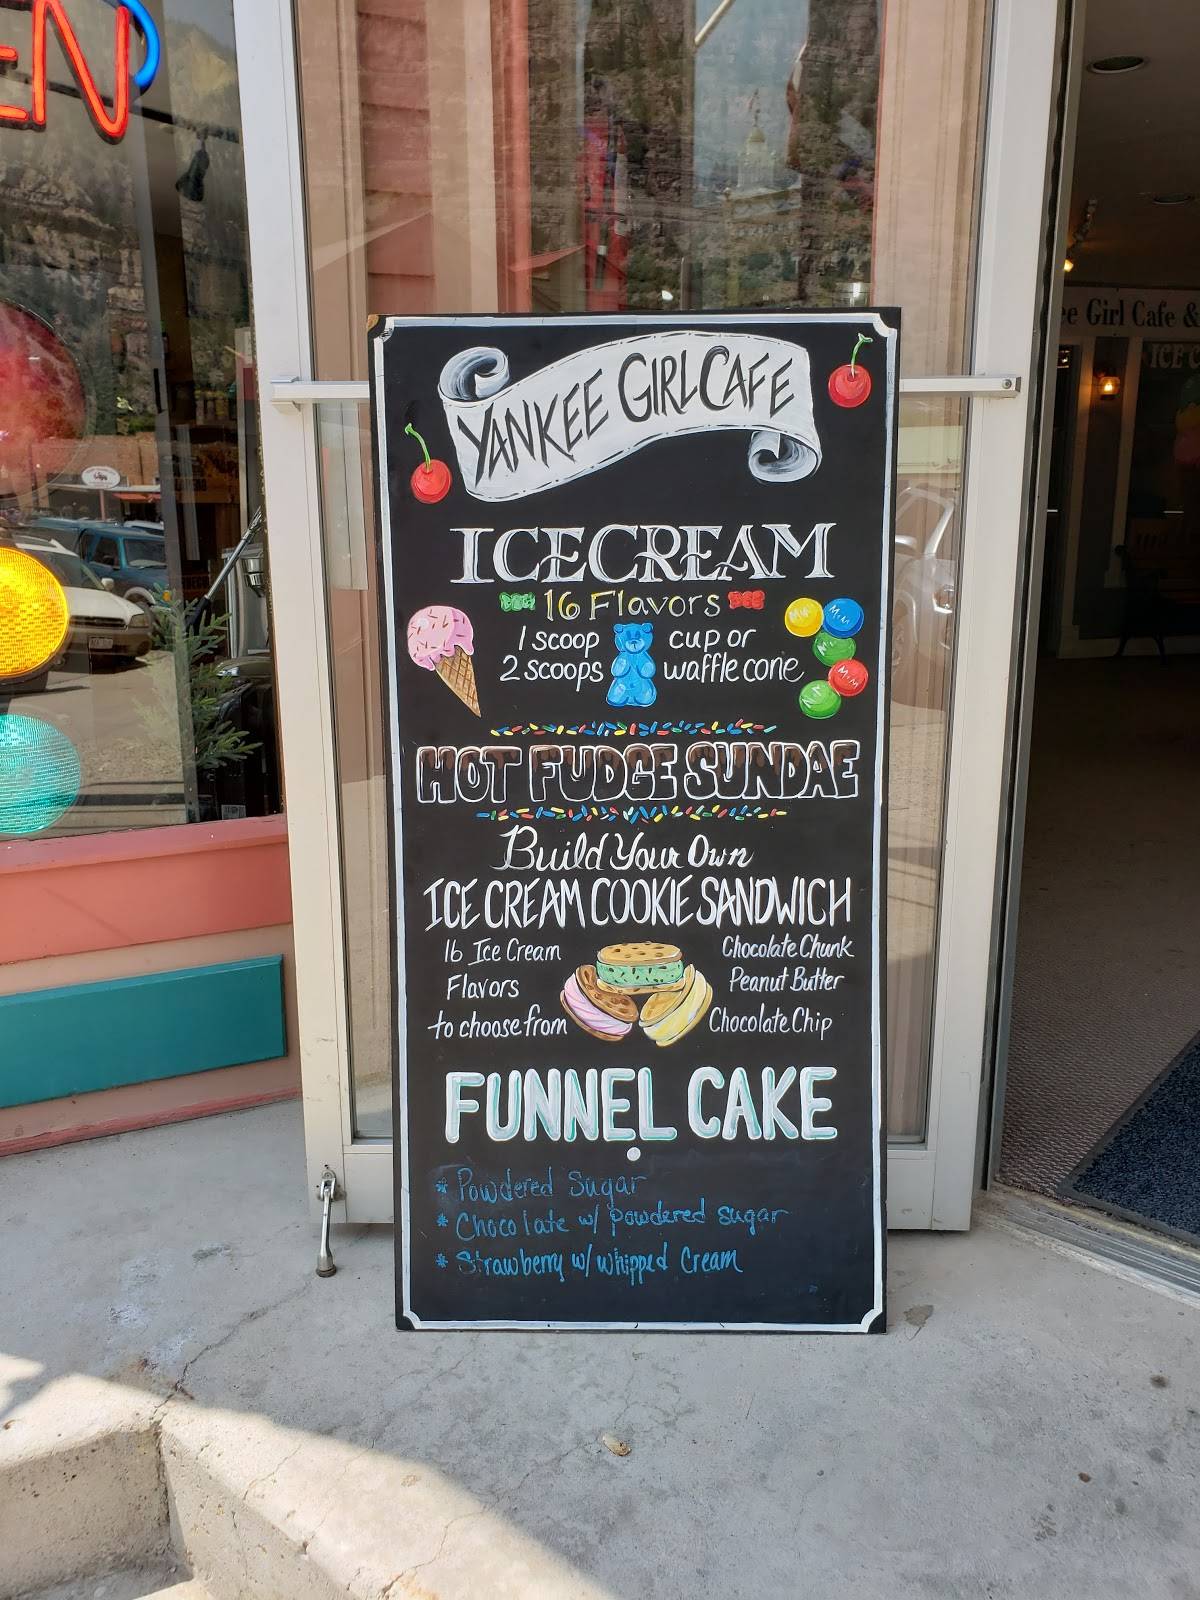 EN
YANKEE GIRL CAFE
ICECREAM
16 Flavors
1 scoop cup or
2 scoops waffle cone
M&M
HOT FUDGE SUNDAE
Build Your Own
ICE CREAM COOKIE SANDWICH
16 Ice Cream
Flavors
to choose from
Chocolate Chunk
Peanut Butter
Chocolate Chip
FUNNEL CAKE
* Powdered Sugar
* Chocolate w/ powdered sugar
* Strawberry w/ whipped Cream
ee Girl Cafe &
ICE C